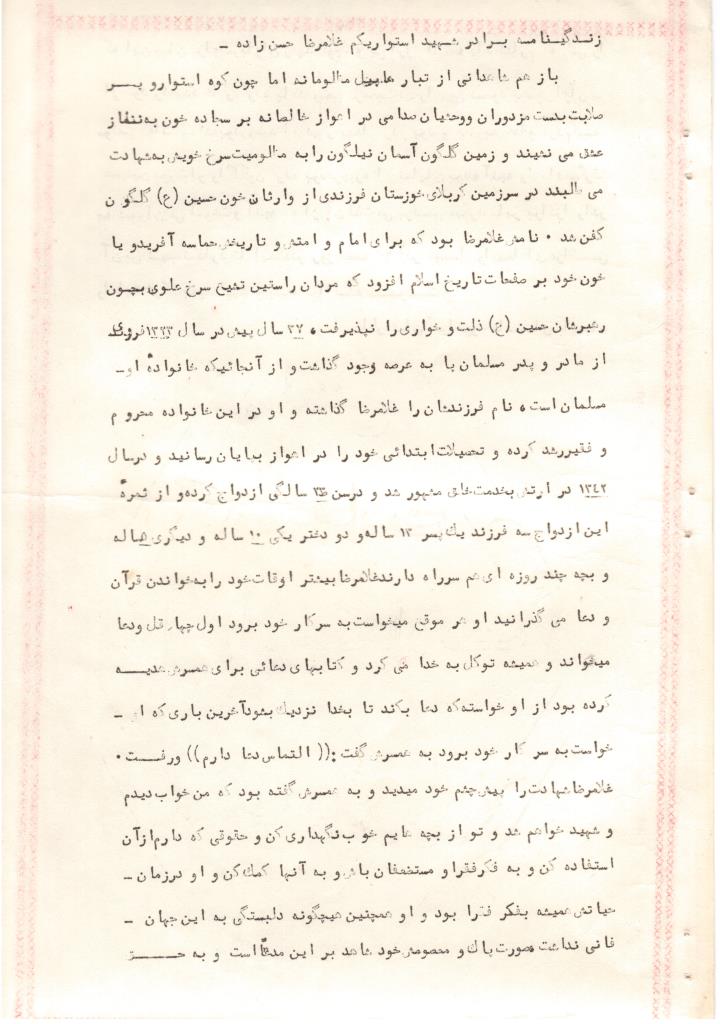 زندگینامه برادر شهید استواریکم غلامرضا حسن زاده -
باز هم شاهدانی از تبار هابیل مظلومانه اما چون کوه استوار و پر
صلابت بدست مزدوران و وحشیان صدامی در اهواز خالصانه بر سجاده خون به نماز
عشق می نشیند و زمین گلگون آسمان نیلگون را به مظلومیت سرخ خویش به شهادت
می طلبند در سرزمین کربلای خوزستان فرزندی از وارثان خون حسین (ع) گلگون
کفن شد ۰ نامش غلامرضا بود که برای امام و امتش و تاریخش حماسه آفرید و با
خون خود بر صفحات تاریخ اسلام افزود که مردان راستین تشیع سرخ علوی بچون
رهبرشان حسین (ع) ذلت و خواری را نپذیرفت، ۲۷ سال پیش در سال ۱۳۳۳ فروردین
از مادر و پدر مسلمان پا به عرصه وجود گذاشت و از آنجائیکه خانواده او -
مسلمان است، نام فرزندشان را غلامرضا گذاشته و او در این خانواده محروم
و فقیر رشد کرده و تحصیلات ابتدائی خود را در اهواز بپایان رسانید و در سال
۱۳۴۲ در ارتش بخدمت خلق مشهور شد و در سن سالگی ازدواج کرده و از ثمره
این ازدواج سه فرزند یک پسر ۱۳ ساله و دو دختر یکی ۱۰ ساله و دیگری ساله
و بچه چند روزه ای هم سر راه دارند غلامرضا بیشتر اوقات خود را به خواندن قرآن
و دعا می گذرانید او هر موقع میخواست به سر کار خود برود اول چهار قل و دعا
میخواند و همیشه توکل به خدا می کرد و کتابهای دعائی برای همسرش هدیه
کرده بود از او خواسته که دعا بکند تا بخدا نزدیک بشود آخرین باری که او -
خواست به سر کار خود برود به همسرش گفت :(( التماس دعا دارم)) و رفت ۰
غلامرضا شهادت را پیش چشم خود میدید و به همسرش گفته بود که من خواب دیدم
و شهید خواهم شد و تو از بچه هایم خوب نگهداری کن و حقوقی که دارم از آن
استفاده کن و به فکر فقرا و مستضعفان باش و به آنها کمک کن و او در زمان -
حیاتش همیشه بفکر فقرا بود و او همچنین هیچگونه دلبستگی به این جهان -
فانی نداشت صورت پاک و معصومش خود شاهد بر این مدعا است و به حق